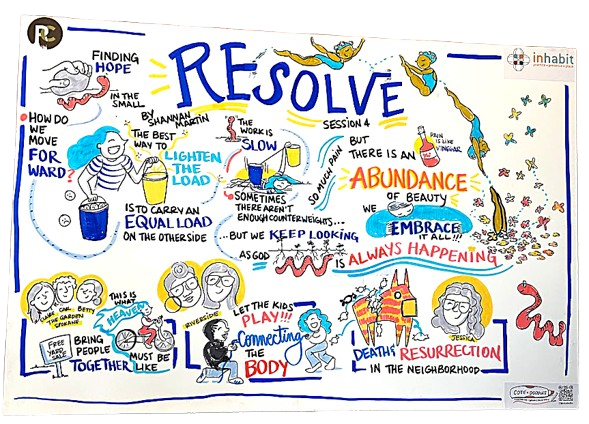 RC
inhabit
RESOLVE
SESSION 4
BY SHANNAN
MARTIN
FINDING
HOPE
IN THE
SMALL
HOW DO
WE
MOVE
FOR
WARD?
THE BEST
WAY TO
LIGHTEN
THE
LOAD
IS TO CARRY AN
EQUAL LOAD
ON THE OTHERSIDE
THE
WORK IS
SLOW
SOMETIMES
THERE AREN'T
ENOUGH COUNTERWEIGHTS...
...BUT WE KEEP LOOKING
SO MUCH PAIN
BUT
THERE IS AN
PAIN
IS LIKE
VINEGAR
ABUNDANCE
OF BEAUTY
WE
EMBRACE
IT ALL!!!
AS GOD
IS ALWAYS HAPPENING
CARL BETTY
THE GARDEN
SPOKANE
FREE
YARD
SALE
BRING
PEOPLE
TOGETHER
THIS IS
WHAT
HEAVEN
MUST BE
LIKE
RIVERSIDE
LET THE KIDS
PLAY!!!
Connecting
THE
BODY
JESSICA
DEATH & RESURRECTION
IN THE NEIGHBORHOOD